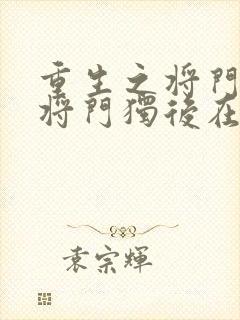 重生之將門
將門獨後在
袁宗輝